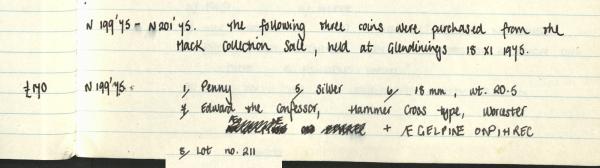 N 199'75 - N 201'75. The following three coins were purchased from the
Mack Collection Sale, held at Glendinings 18 XI 1975.
£170 N 199'75. 1, Penny 5, Silver 6, 18 mm, wt. 20.5
7, Edward the Confessor, Hammer Cross type, Worcester
+ ÆGELPINE ONPIHREC
8, Lot no. 211